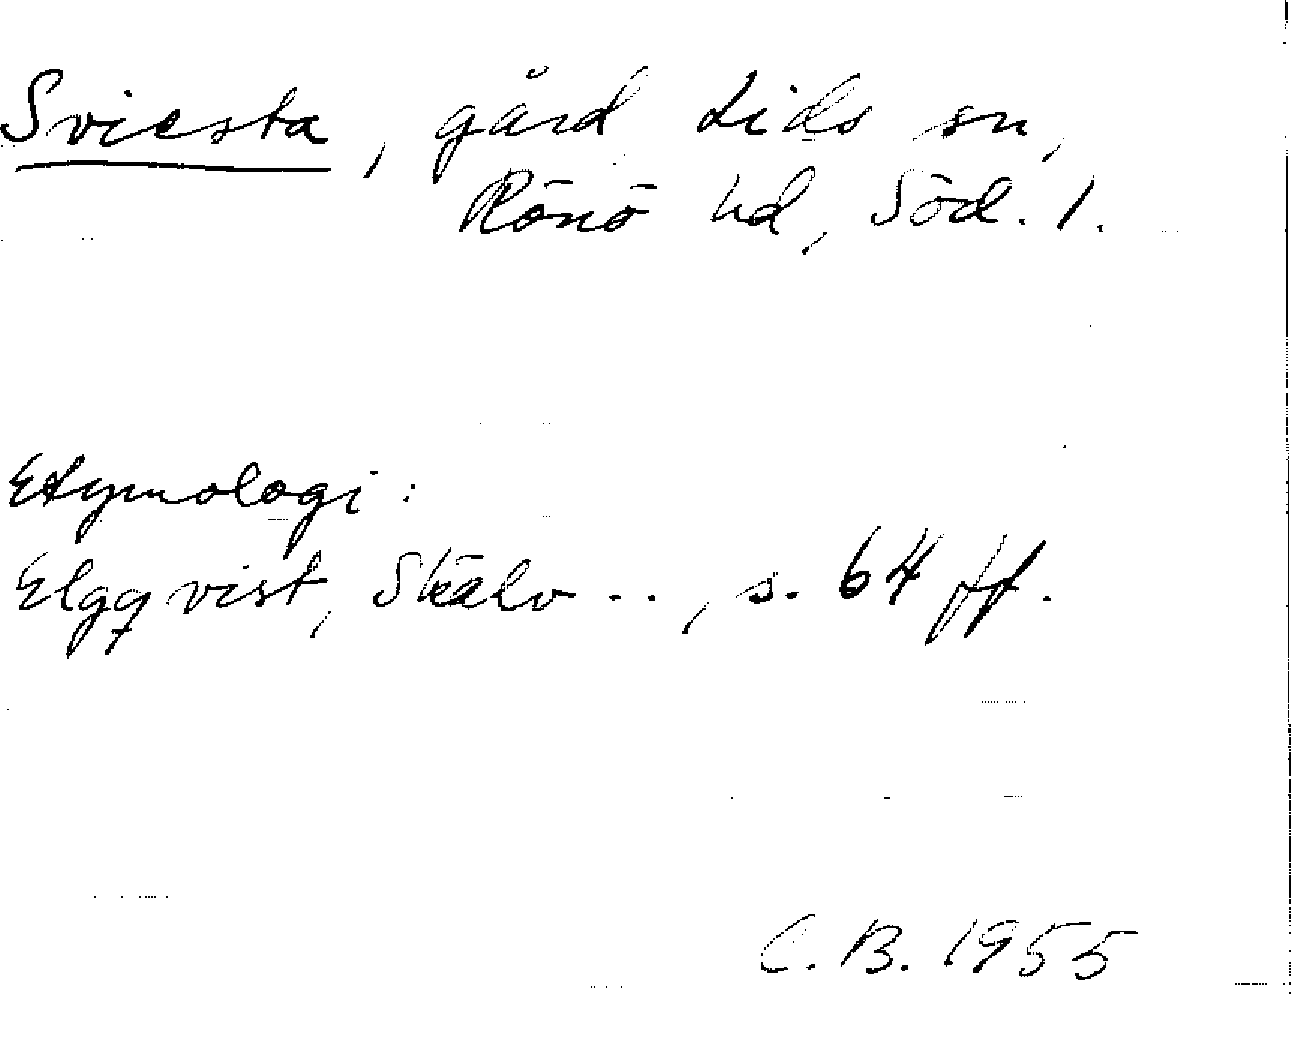 Sviesta, gård Lids sn,
Rönö hd, Söd. l.
Etymologi:
Elgqvist, Skälv .., s. 64 ff.
C.B. 1955